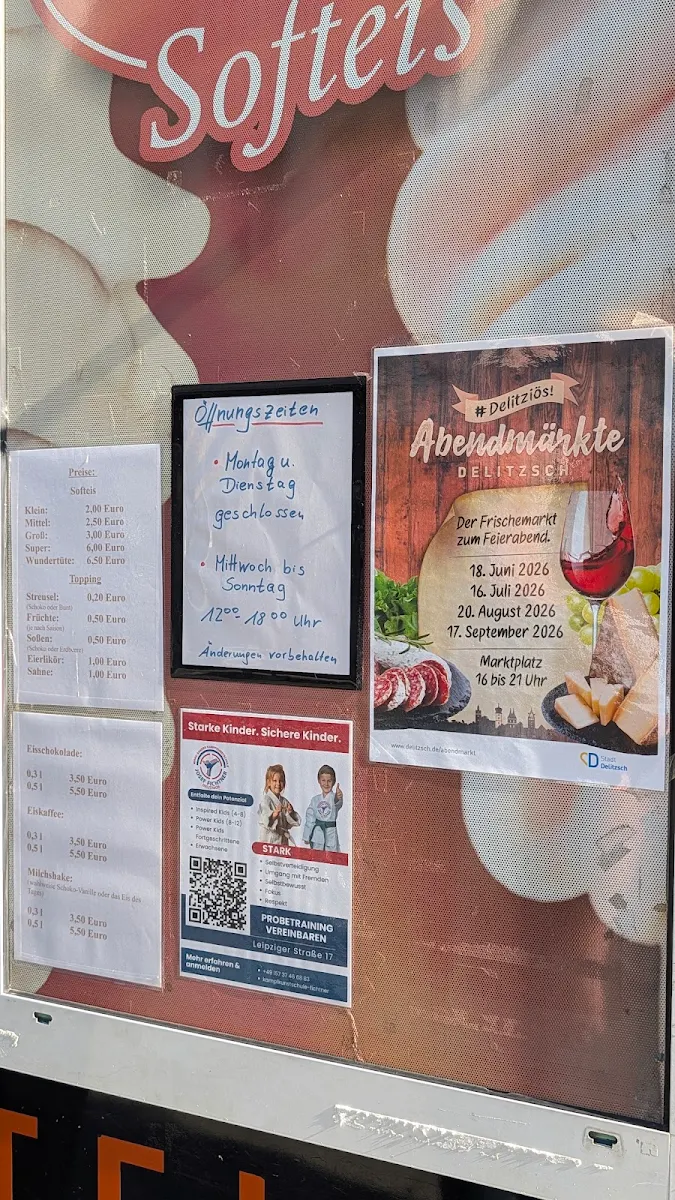 Softeis
Preise:
Softeis
Klein: 2,00 Euro
Mittel: 2,50 Euro
Groß: 3,00 Euro
Super: 6,00 Euro
Wundertüte: 6,50 Euro
Topping
Streusel: 0,20 Euro
(Schoko oder Bunt)
Früchte: 0,50 Euro
(je nach Saison)
Soßen: 0,50 Euro
(Schoko oder Erdbeere)
Eierlikör: 1,00 Euro
Sahne: 1,00 Euro
Eisschokolade:
0,3 l 3,50 Euro
0,5 l 5,50 Euro
Eiskaffee:
0,3 l 3,50 Euro
0,5 l 5,50 Euro
Milchshake:
(wahlweise Schoko-Vanille oder das Eis des
Tages)
0,3 l 3,50 Euro
0,5 l 5,50 Euro
Öffnungszeiten
• Montag u.
Dienstag
geschlossen
• Mittwoch bis
Sonntag
12⁰⁰ - 18⁰⁰ Uhr
Änderungen vorbehalten
Starke Kinder. Sichere Kinder.
Entfalte dein Potenzial
• Inspired Kids (4-8)
• Power Kids (8-12)
• Power Kids
Fortgeschrittene
• Erwachsene
STARK
• Selbstverteidigung
• Umgang mit Fremden
• Selbstbewusst
• Fokus
• Respekt
PROBETRAINING
VEREINBAREN
Leipziger Straße 17
Mehr erfahren &
anmelden
• kampfkunstschule-fichtner
# Delitziös!
Abendmärkte
DELITZSCH
Der Frischemarkt
zum Feierabend.
18. Juni 2026
16. Juli 2026
20. August 2026
17. September 2026
Marktplatz
16 bis 21 Uhr
www.delitzsch.de/abendmarkt
Stadt
Delitzsch